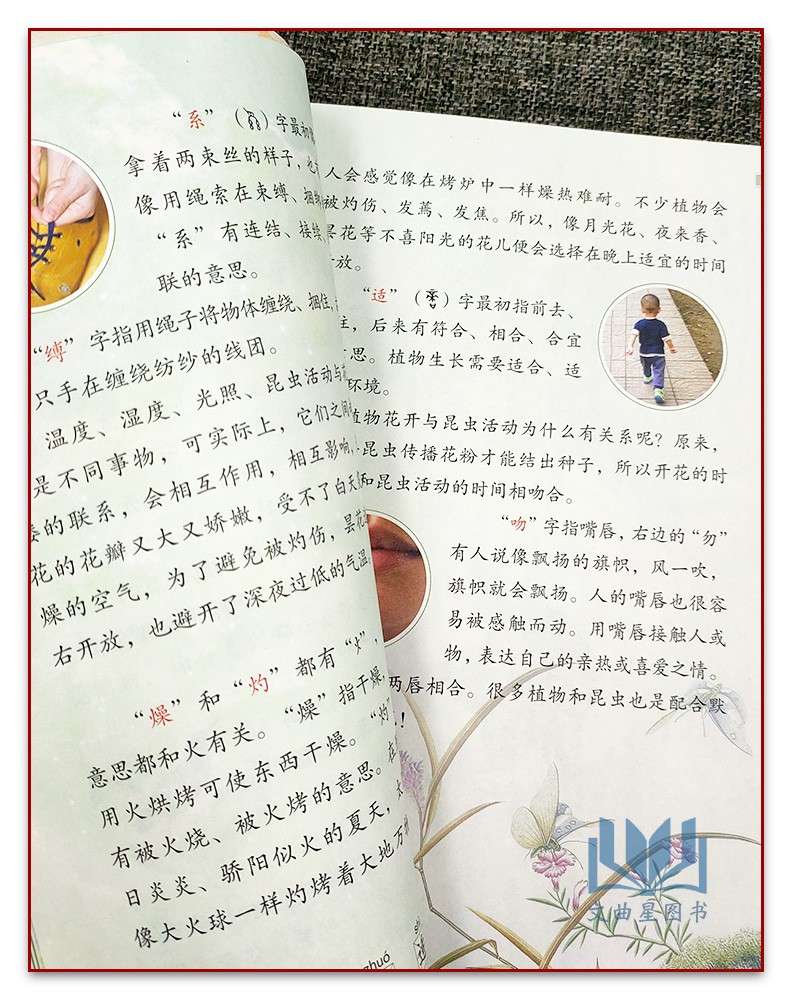 “系”（）字最初
拿着两束丝的样子，也
像用绳索在束缚、捆
“系”有连结、接续、
联的意思。
“缚”字指用绳子将物体缠绕、捆住，
只手在缠绕纺纱的线团。
温度、湿度、光照、昆虫活动与
是不同事物，可实际上，它们之间
的联系，会相互作用，相互影响，
花的花瓣又大又娇嫩，受不了白天
燥的空气，为了避免被灼伤，昙花
右开放，也避开了深夜过低的气温
“燥”和“灼”都有“火”，
意思都和火有关。“燥”指干燥，
用火烘烤可使东西干燥。“灼”
有被火烧、被火烤的意思。在
日炎炎、骄阳似火的夏天，太
像大火球一样灼烤着大地万
zhuó
人会感觉像在烤炉中一样燥热难耐。不少植物会
被灼伤、发蔫、发焦。所以，像月光花、夜来香、
昙花等不喜阳光的花儿便会选择在晚上适宜的时间
放。
“适”（）字最初指前去、
往，后来有符合、相合、合宜
思。植物生长需要适合、适
环境。
植物花开与昆虫活动为什么有关系呢？原来，
昆虫传播花粉才能结出种子，所以开花的时
和昆虫活动的时间相吻合。
“吻”字指嘴唇，右边的“勿”
有人说像飘扬的旗帜，风一吹，
旗帜就会飘扬。人的嘴唇也很容
易被感触而动。用嘴唇接触人或
物，表达自己的亲热或喜爱之情。
两唇相合。很多植物和昆虫也是配合默
！
文曲星图书